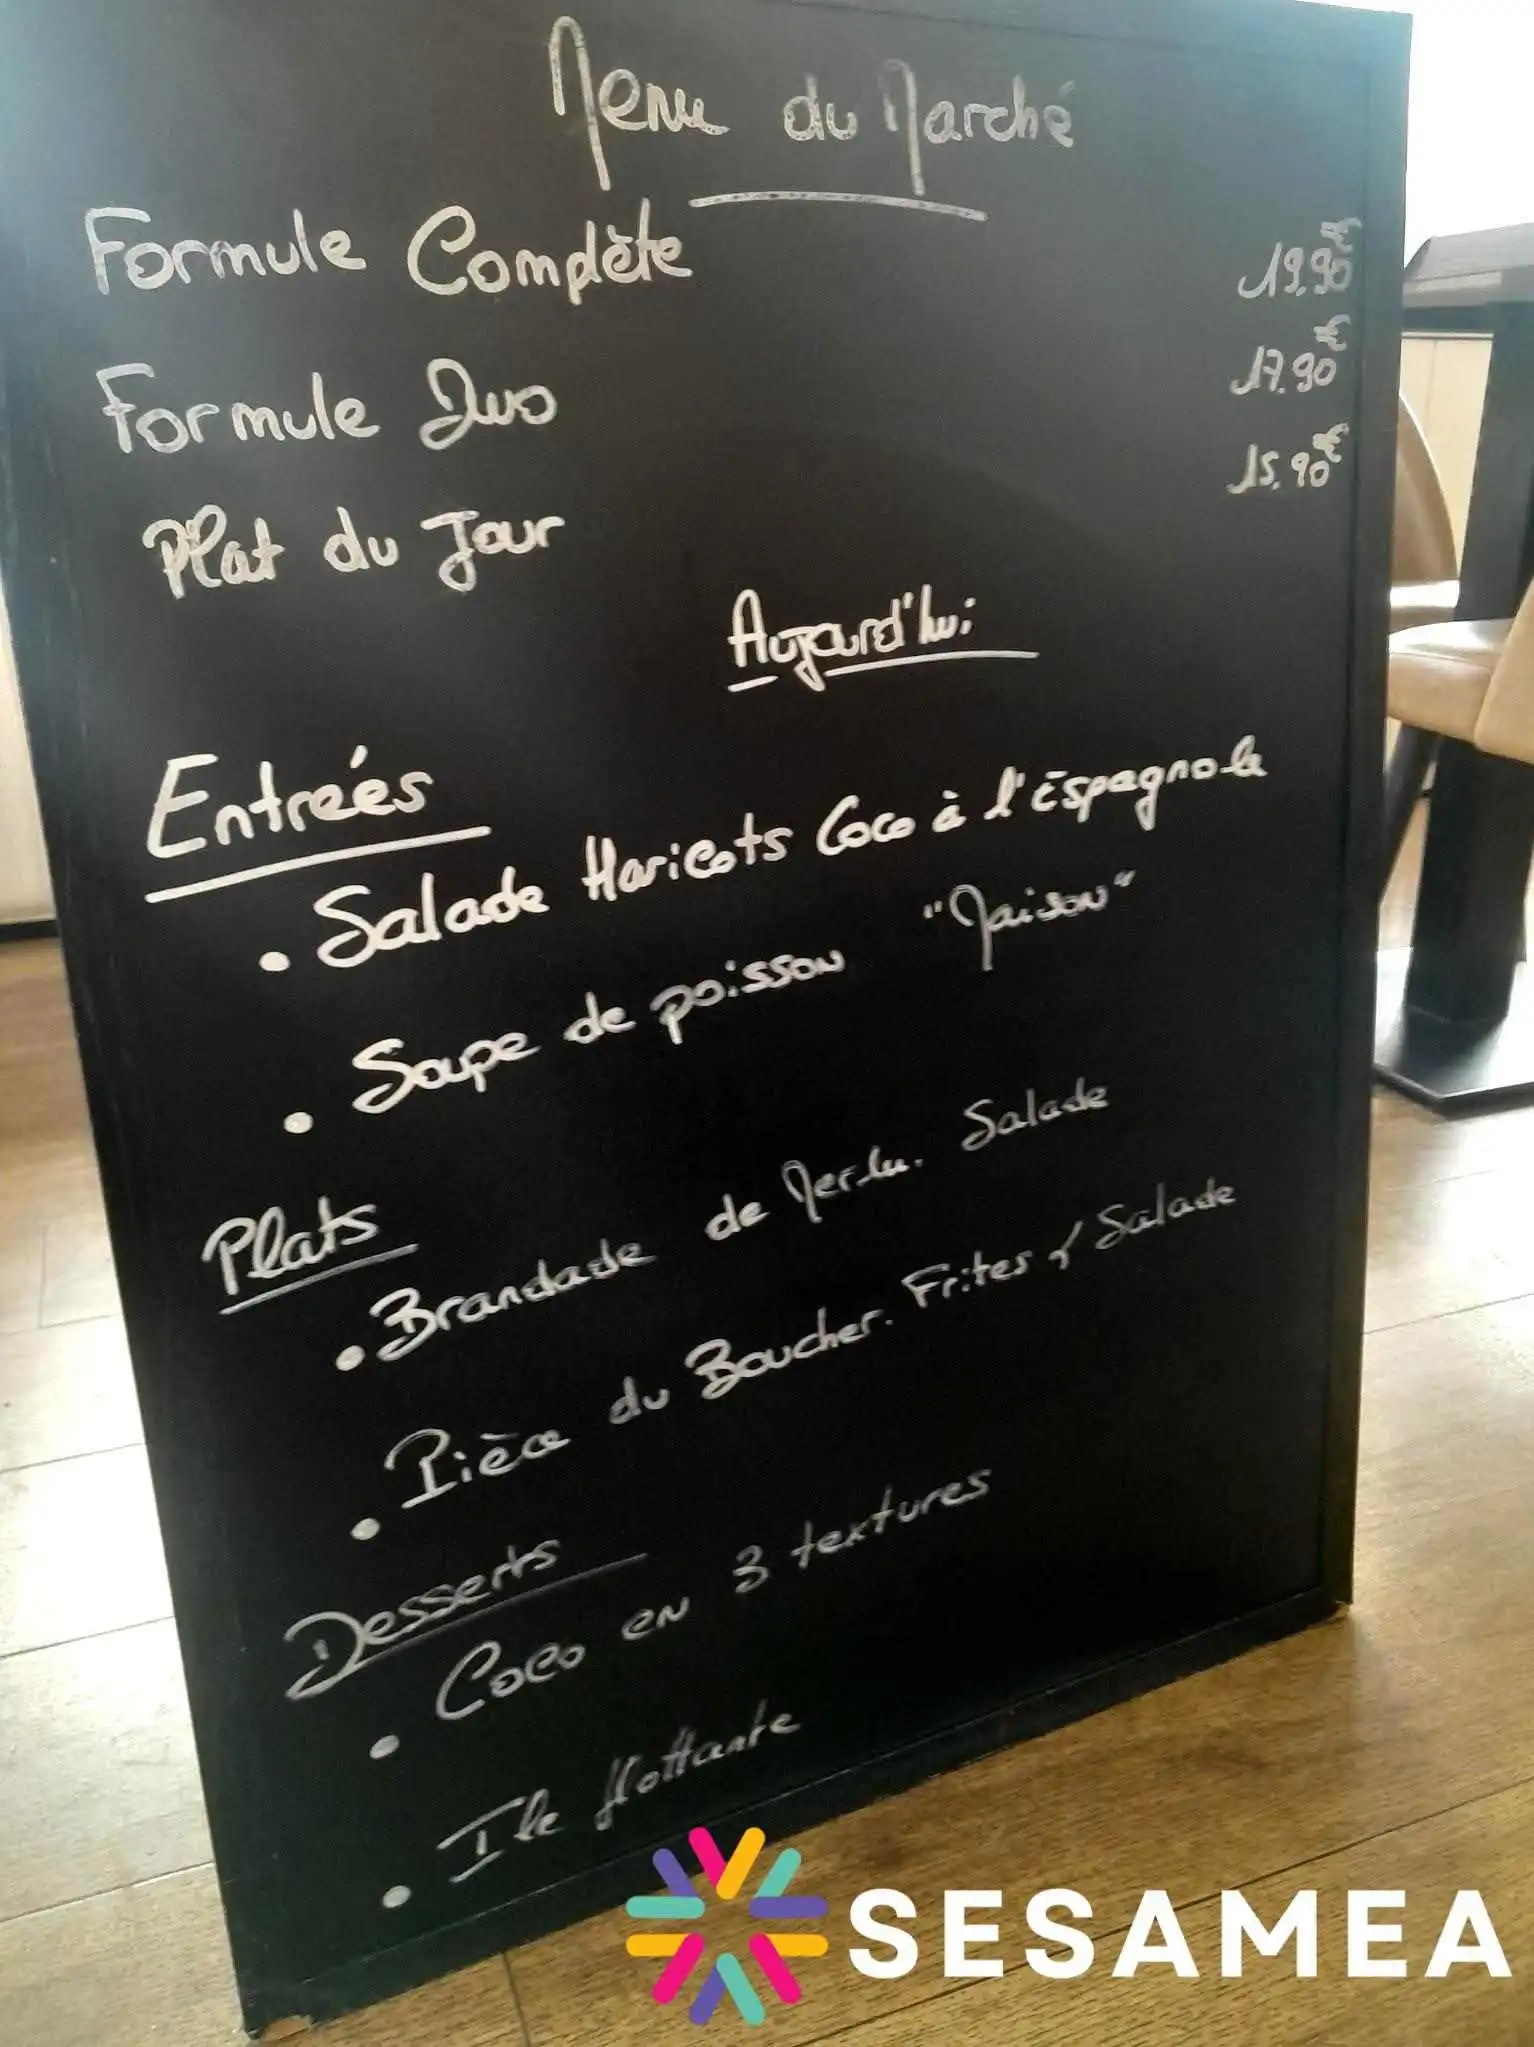 Menu du Marché
Formule Complète 19.90€
Formule Duo 17.90€
Plat du Jour 15.90€
Aujourd'hui
Entreés
• Salade Haricots Coco à l'Espagnole
• Soupe de poisson "Maison"
Plats
• Brandade de Merlu. Salade
• Pièce du Boucher. Frites & Salade
Desserts
• Coco en 3 textures
• Ile flottante
SESAMEA